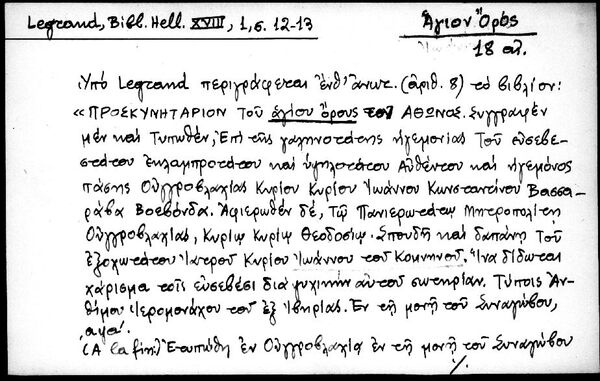 Legrand, Bibl. Hell. XVIII, 1, σ. 12-13
Ἅγιον Ὄρος
18 αἰ.
Ὑπό Legrand περιγράφεται ἐνθ' ἀνωτ. (ἀριθ. 8) τό βιβλίον:
«ΠΡΟΣΚΥΝΗΤΑΡΙΟΝ τοῦ ἁγίου ὄρους τοῦ ΑΘΩΝΟΣ. Συγγραφέν
μέν καί Τυπωθέν, Ἐπί τῆς γαληνοτάτης ἡγεμονίας Τοῦ εὐσεβε-
στάτου ἐκλαμπροτάτου καί ὑψηλοτάτου Αὐθέντου καί ἡγεμόνος
πάσης Οὑγγροβλαχίας Κυρίου Κυρίου Ἰωάννου Κωνσταντίνου Βασσα-
ράβα Βοεβόνδα. Ἀφιερωθέν δέ, Τῷ Πανιερωτάτῳ Μητροπολίτῃ
Οὑγγροβλαχίας, Κυρίῳ Κυρίῳ Θεοδοσίῳ. Σπουδῇ καί δαπάνῃ Τοῦ
ἐξοχωτάτου Ἰατροῦ Κυρίου Ἰωάννου τοῦ Κομνηνοῦ. Ἵνα δίδωται
χάρισμα τοῖς εὐσεβέσι διά ψυχικήν αὑτοῦ σωτηρίαν. Τύποις Ἀν-
θίμου Ἱερομονάχου τοῦ ἐξ Ἰβηρίας. Ἐν τῇ μονῇ τοῦ Συναγώβου,
αψα'.
(A la fin:) Ἐτυπώθη ἐν Οὑγγροβλαχίᾳ ἐν τῇ μονῇ τοῦ Συναγώβου
./.